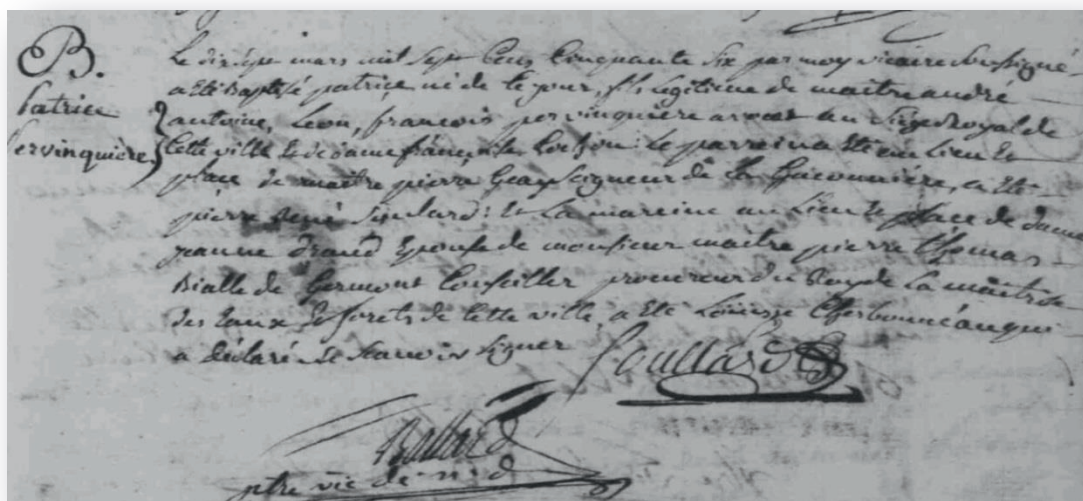 B.
patrice
pervinquière
Le dix sept mars mil sept Cens Cinquante Six par moy vicaire Soussigné
a été Baptisé patrice né de ce jour, fils Légitime de maitre andré
antoine, Leon, francois pervinquière avocat au Siege Royal de
Cette ville et de dame françoise : Le parrein a été au Lieu et
place de maitre pierre Seigneur de la , a été
pierre rené : et La mareine au Lieu et place de dame
jeanne épouse de monsieur maitre pierre thomas
Bialle de Germont Conseiller procureur du Roy de La maitrise
des Eaux et forets de Cette ville a été Louisse qui
a déclaré ne Scavoir Signer
Ballard
ptre vic de n d